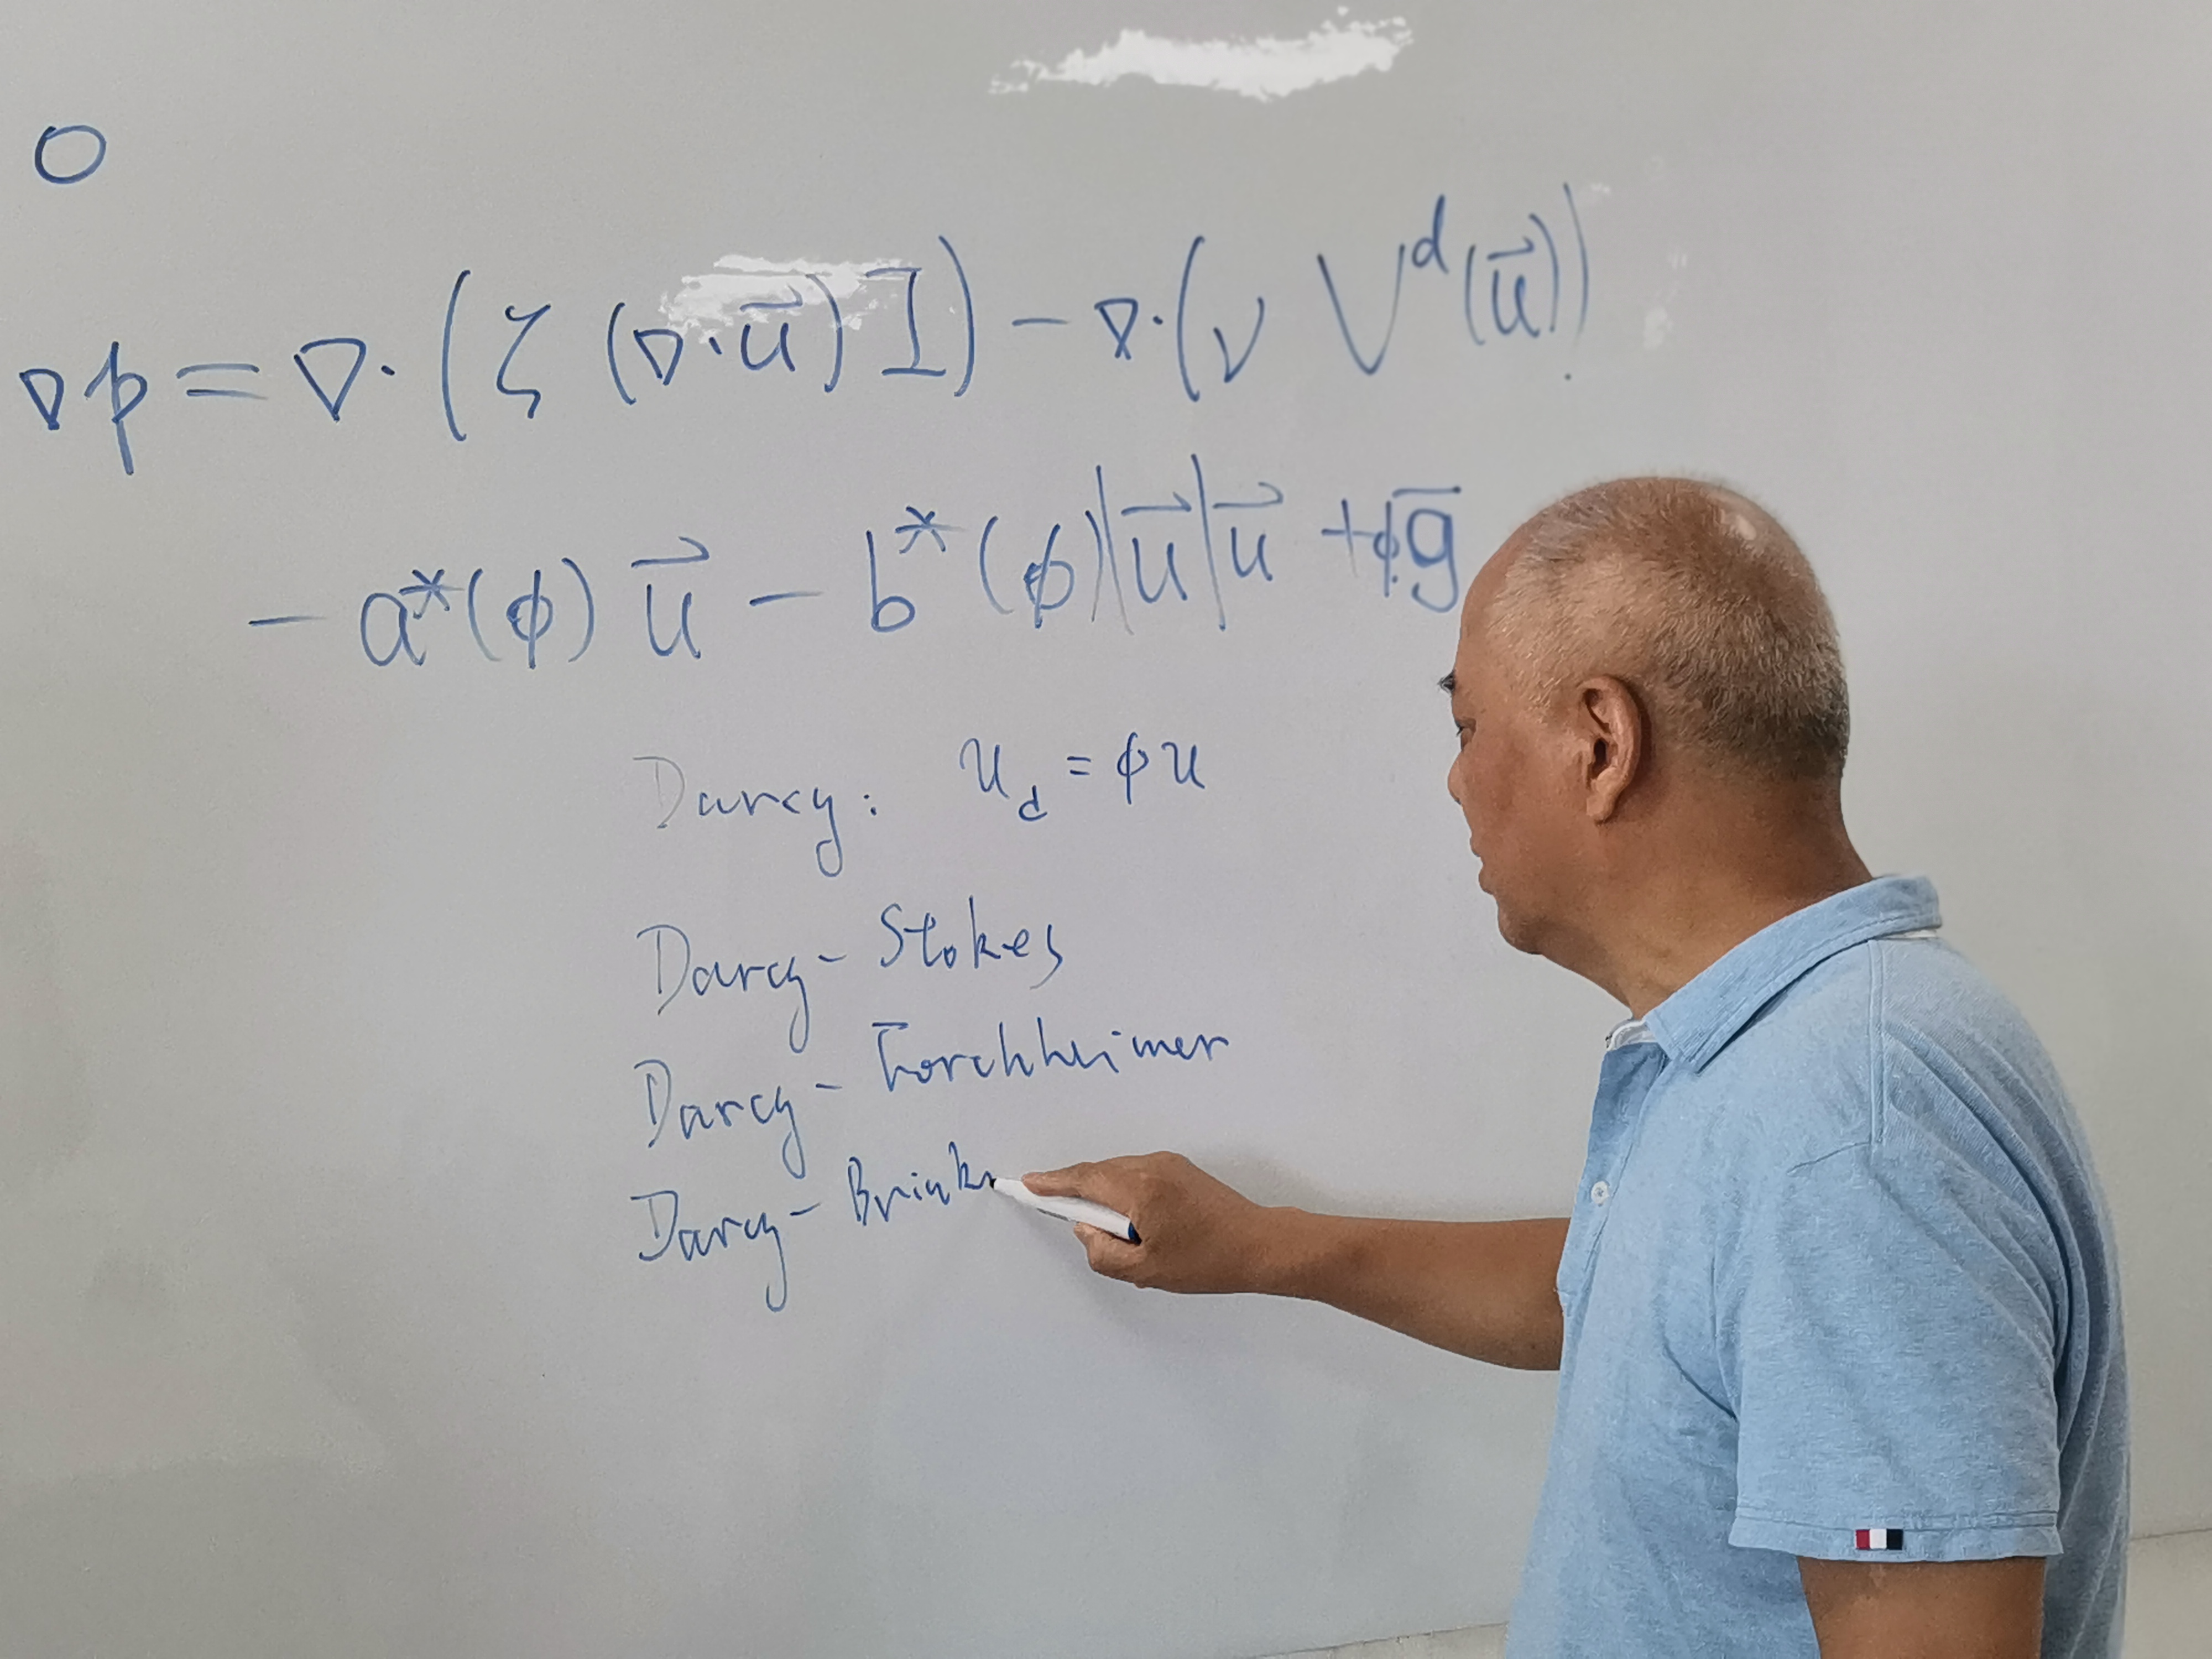 0
∇p = ∇·(ζ (∇·u⃗) I) − ∇·(ν V^d(u⃗))
− a*(ϕ) u⃗ − b*(ϕ)|u⃗|u⃗ + ϕg̅
Darcy: u_d = ϕu
Darcy - Stokes
Darcy - Forchheimer
Darcy - Brink